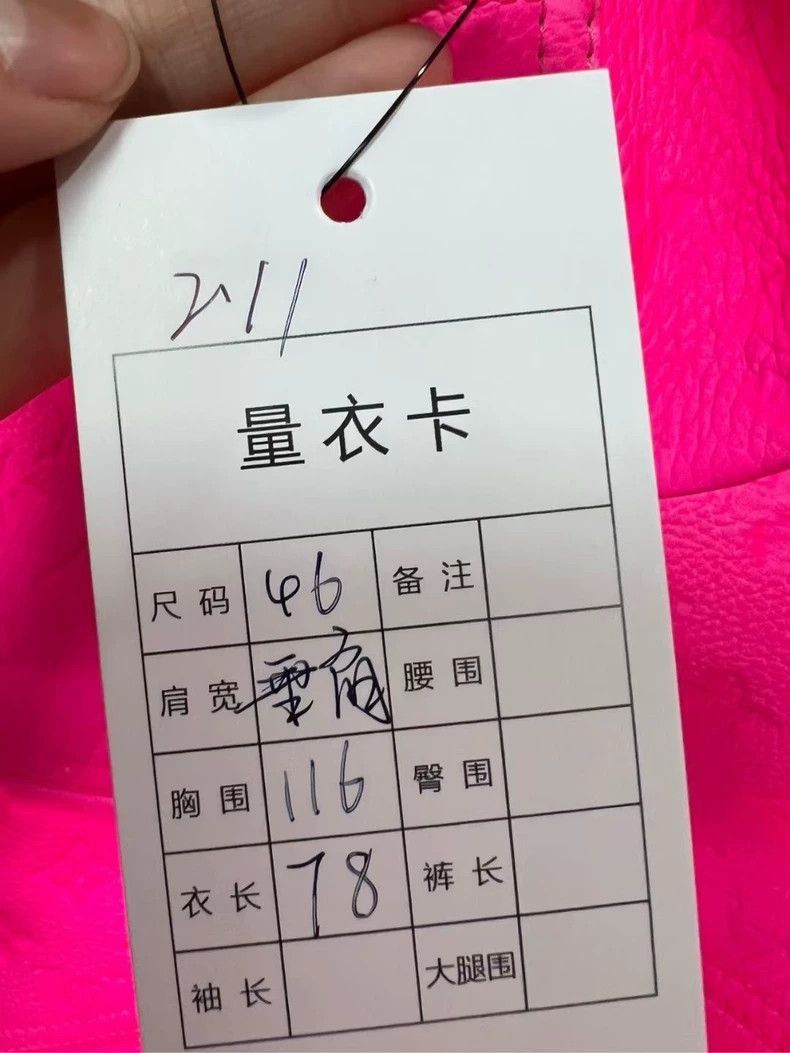 211
量衣卡
尺码 46 备注
肩宽 垂肩 腰围
胸围 116 臀围
衣长 78 裤长
袖长 大腿围